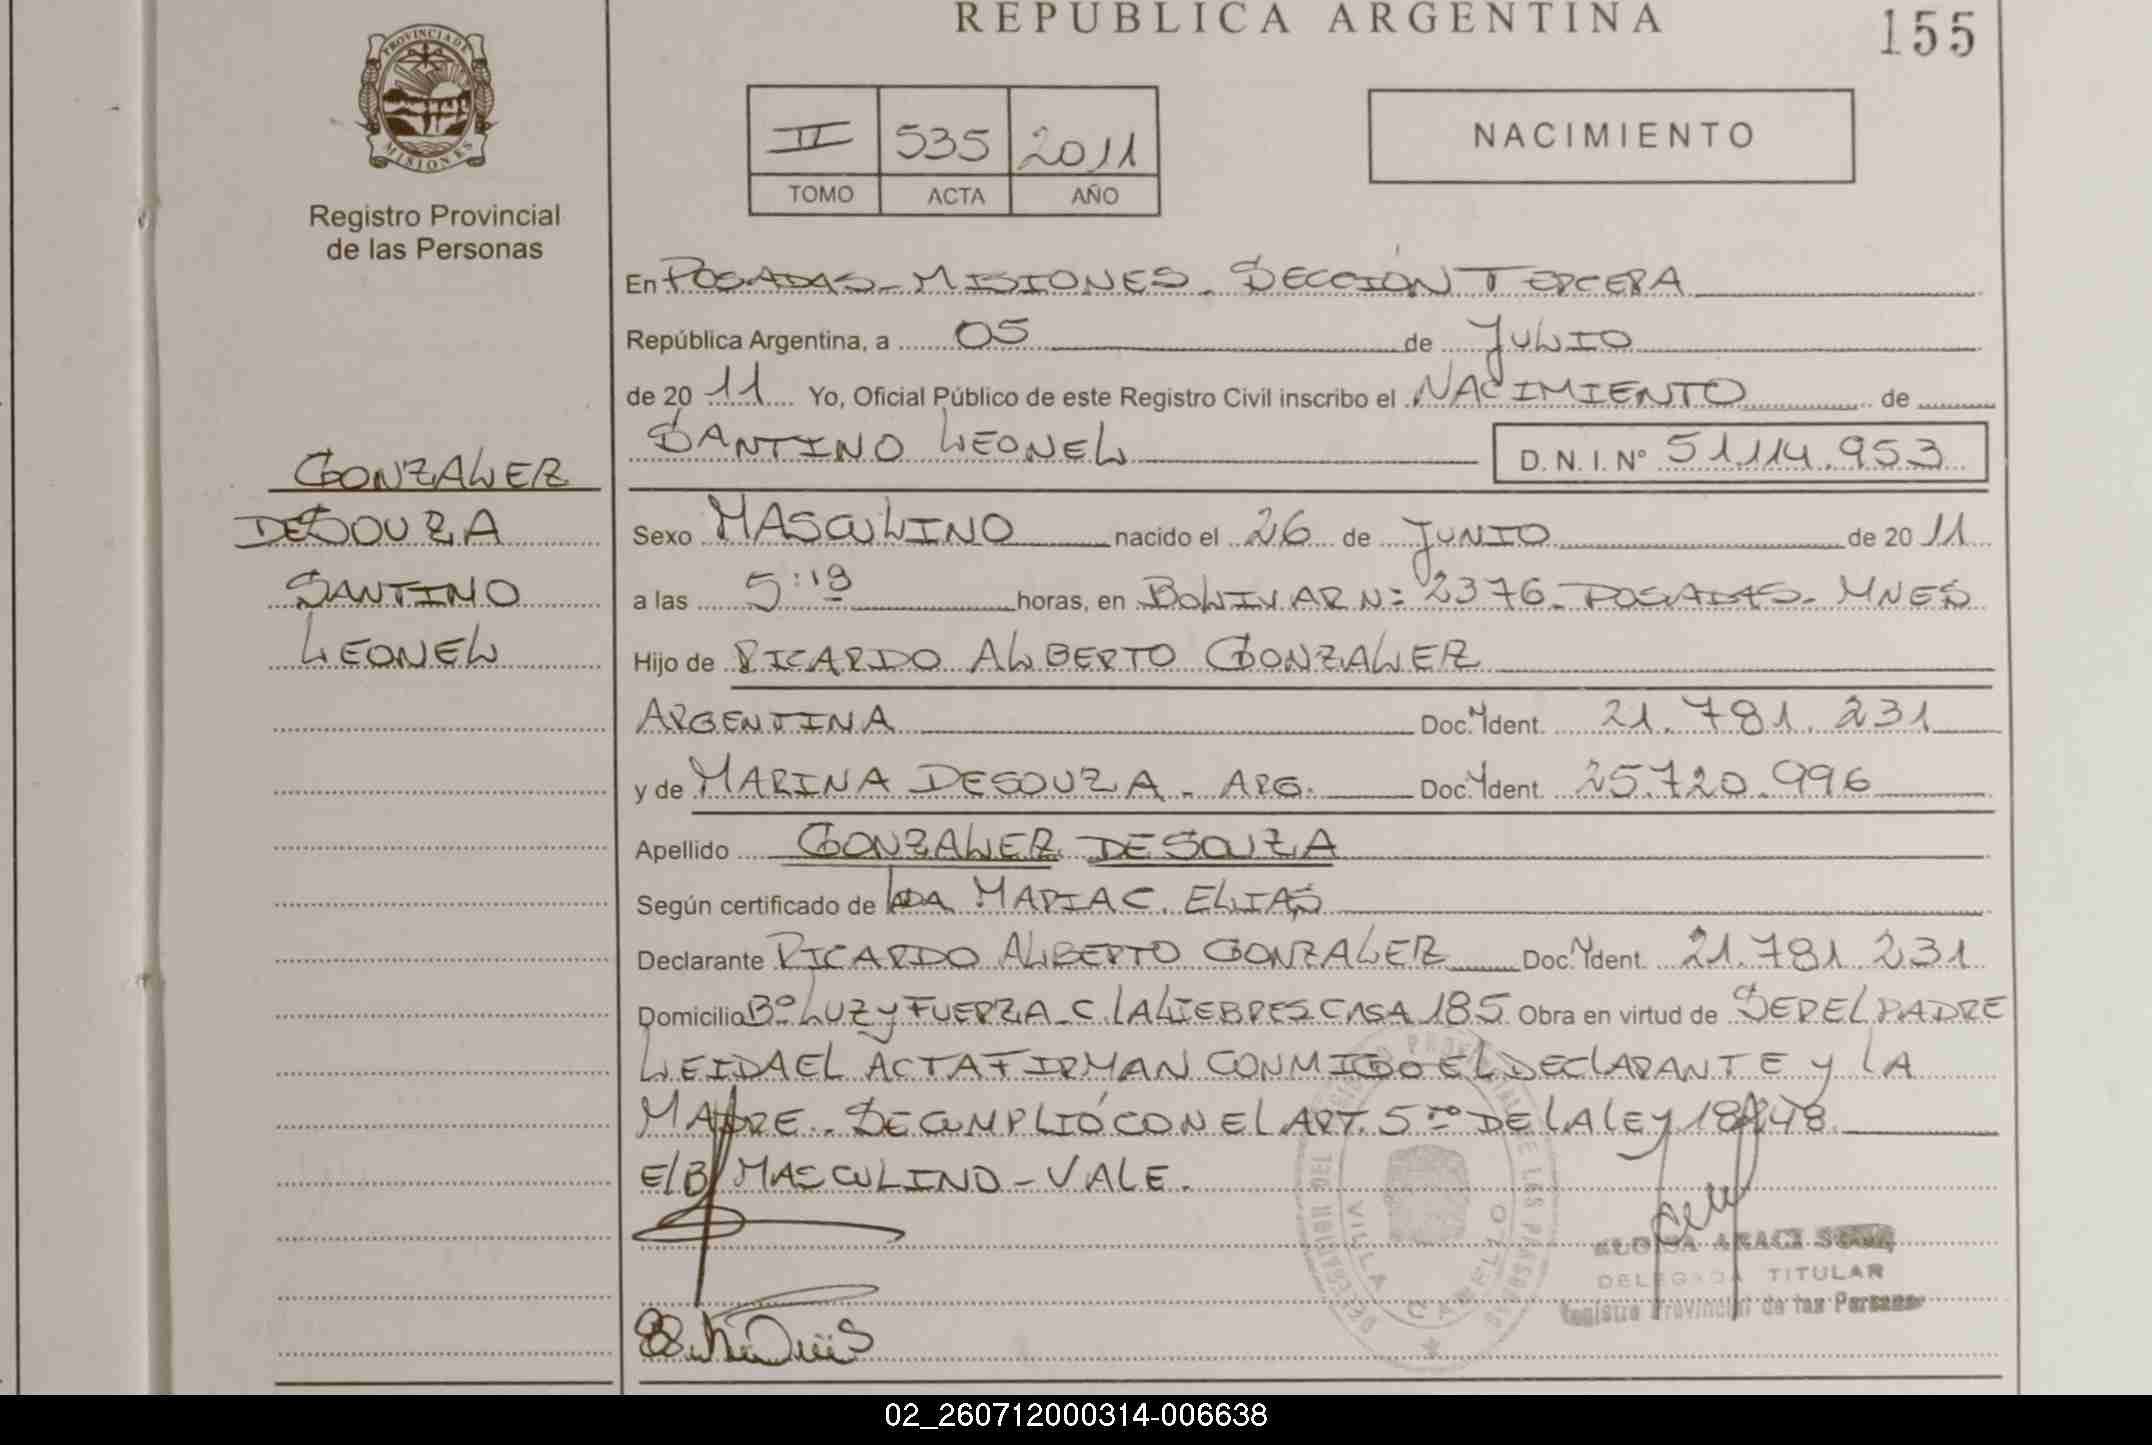 REPUBLICA ARGENTINA
155
PROVINCIA DE
MISIONES
Registro Provincial
de las Personas
II 535 2011
TOMO ACTA AÑO
NACIMIENTO
En POSADAS - MISIONES. SECCIÓN TERCERA
República Argentina, a 05 de JULIO
de 20 11 Yo, Oficial Público de este Registro Civil inscribo el NACIMIENTO de
SANTINO LEONEL D.N.I. Nº 51.114.953
GONZALEZ
DESOUZA
SANTINO
LEONEL
Sexo MASCULINO nacido el 26 de JUNIO de 20 11
a las 5:19 horas, en BOLIVAR Nº 2376 - POSADAS - MNES
Hijo de RICARDO ALBERTO GONZALEZ
ARGENTINA Doc. Ident. 21.781.231
y de MARINA DESOUZA - ARG. Doc. Ident. 25.720.996
Apellido GONZALEZ DESOUZA
Según certificado de MARIA C. ELIAS
Declarante RICARDO ALBERTO GONZALEZ Doc. Ident. 21.781.231
Domicilio Bº LUZ Y FUERZA - C. LALIEBRES CASA 185 Obra en virtud de SER EL PADRE
LEIDA EL ACTA FIRMAN CONMIGO EL DECLARANTE Y LA
MADRE. SE CUMPLIÓ CON EL ART. 5to DE LA LEY 18248.
E/B MASCULINO - VALE.
VILLA CABELLO
ARACI
DELEGADA TITULAR
Registro Provincial de las Personas
02_260712000314-006638